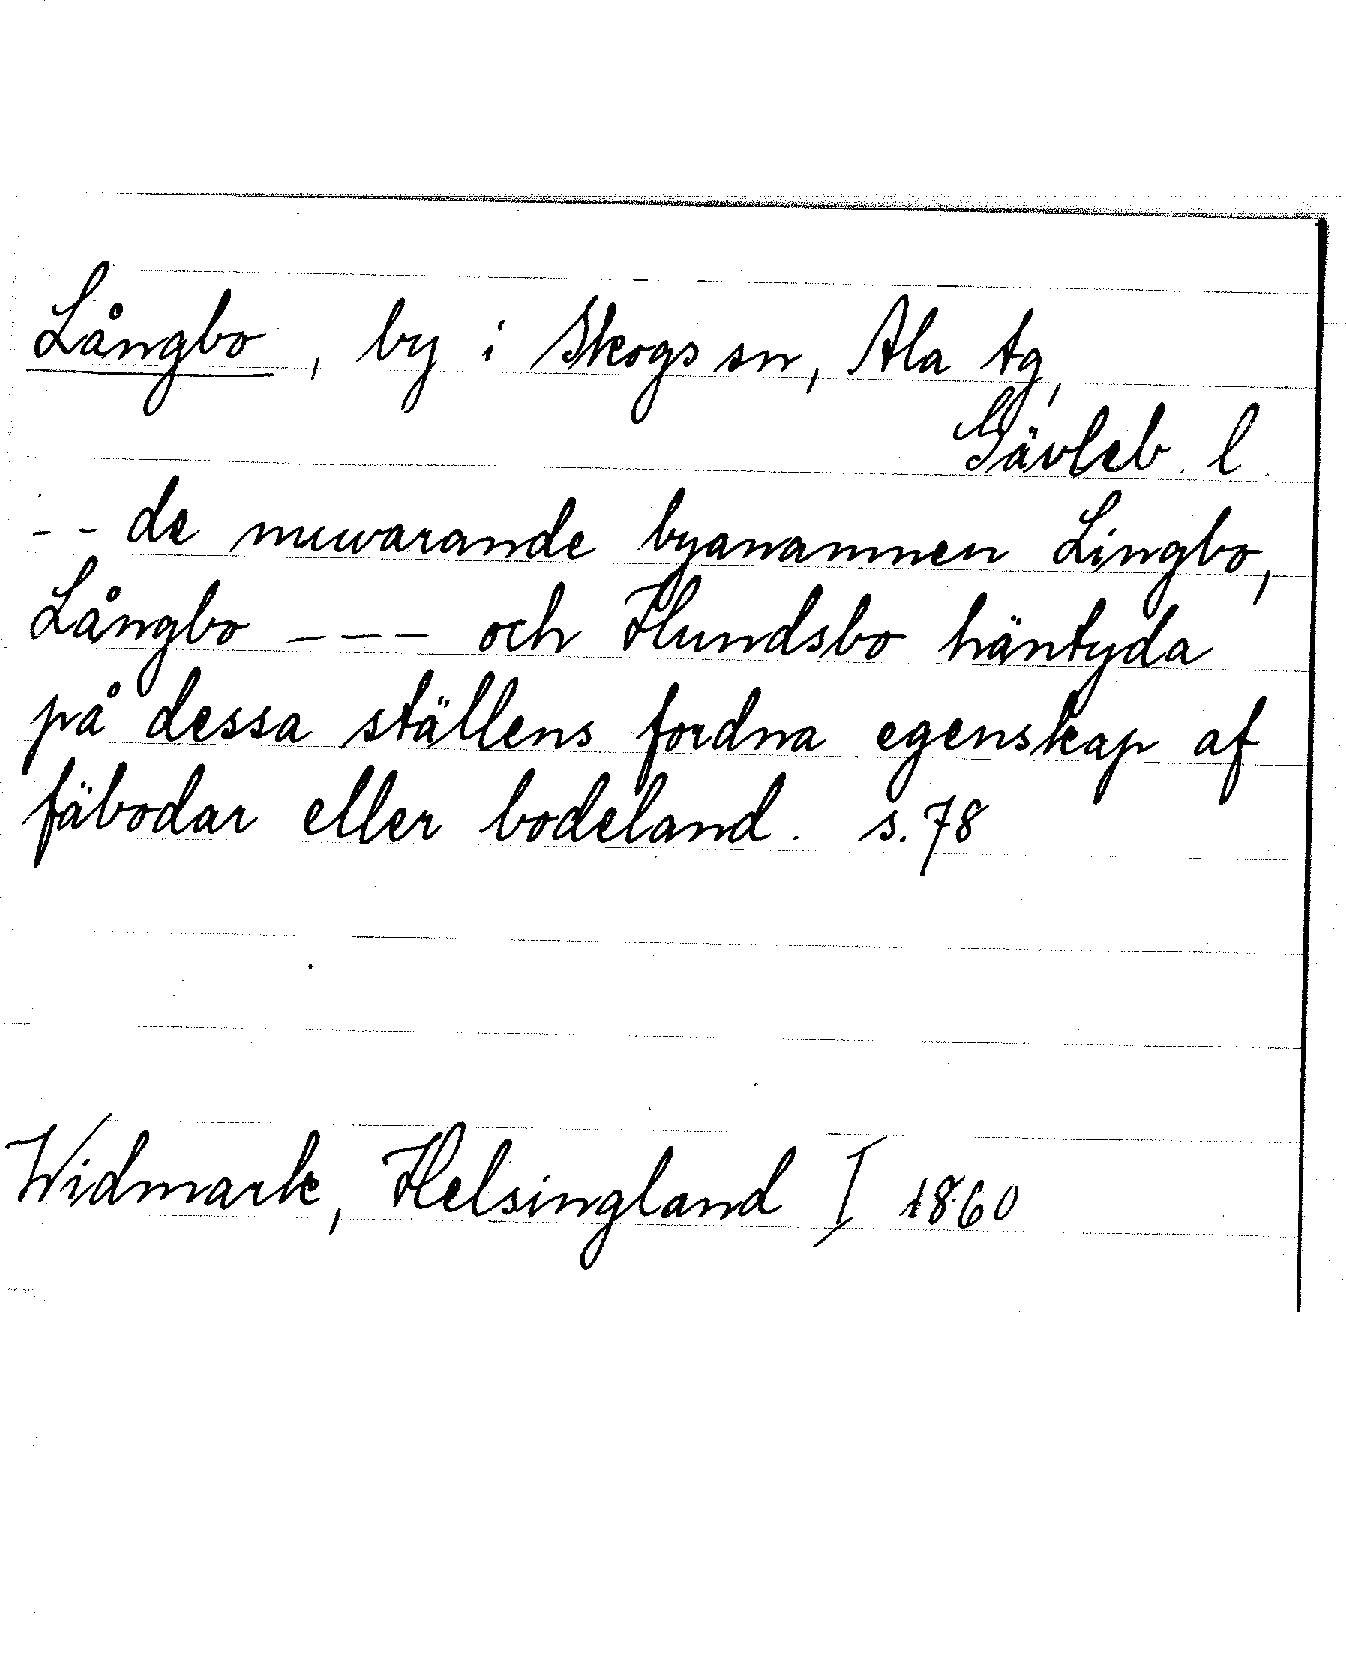 Långbo, by i Skogs sn, Ala tg,
Gävleb. l.
-- de nuwarande byanamnen Lingbo,
Långbo --- och Hundsbo häntyda
på dessa ställens fordna egenskap af
fäbodar eller bodeland. s. 78
Widmark, Helsingland I 1860